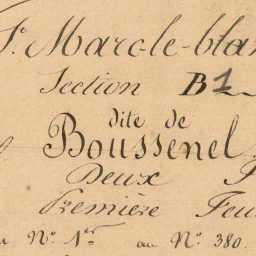 St. Marc-le-blan
Section B1
dite de
Boussenel
Deux
Première Feu
Nº 1er au Nº 380.